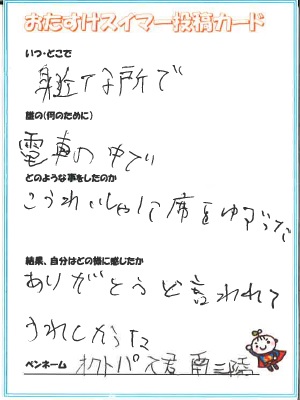 おたすけスイマー投稿カード
いつ・どこで
身近な所で
誰の(何のために)
電車の中で
どのような事をしたのか
こうれいしゃに席をゆずった
結果、自分はどの様に感じたか
ありがとうと言われて
うれしかった
ペンネーム オクトパス君 南三陸